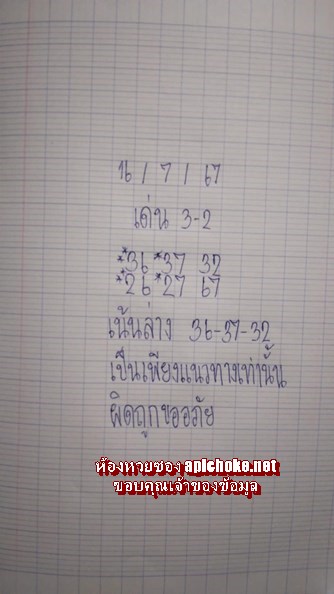 16 / 7 / 67
เด่น 3-2
*36 *37 32
*26 *27 67
เน้นล่าง 36-37-32
เป็นเพียงแนวทางเท่านั้น
ผิดถูกขออภัย
ห้องหวยซอง apichoke.net
ขอบคุณเจ้าของข้อมูล